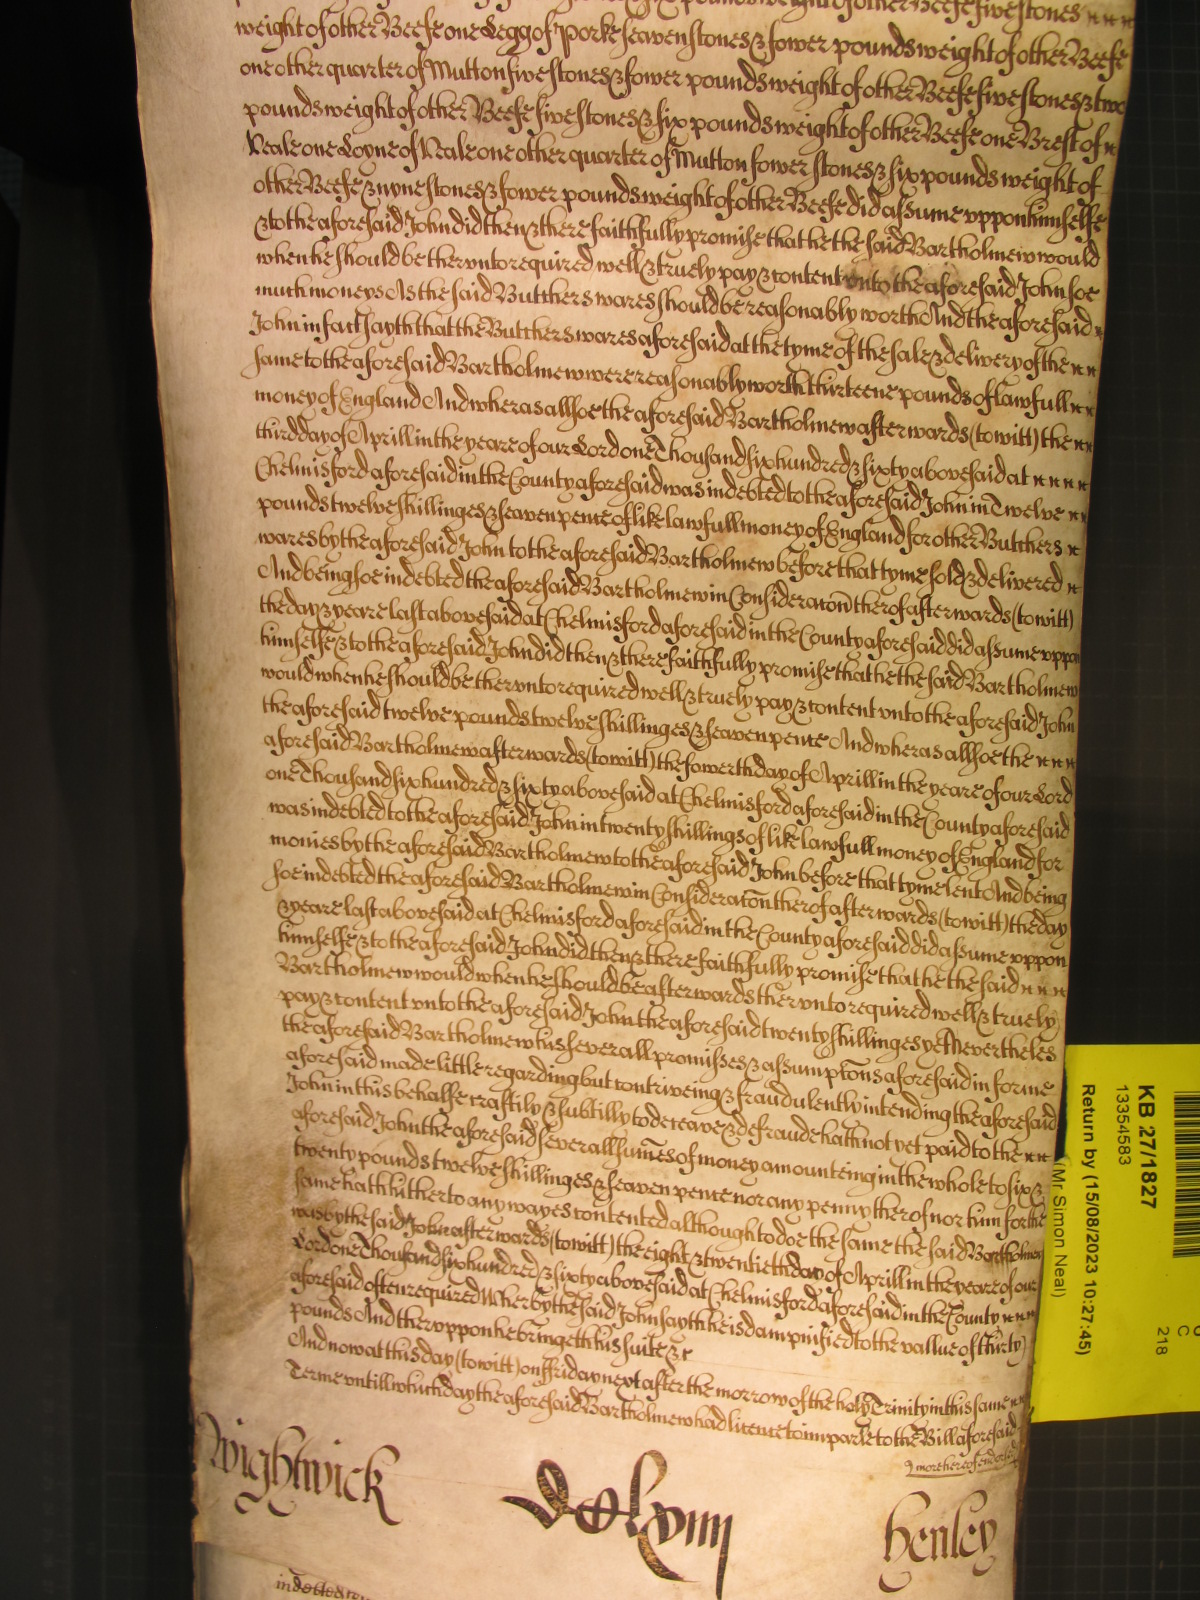 pounds weight of other Beefe five stones
weight of other Beefe one Legg of Porke seaven stones & fower pounds weight of other Beefe
one other quarter of Mutton five stones & fower pounds weight of other Beefe five stones & two
pounds weight of other Beefe five stones & six pounds weight of other Beefe one Brest of
Veale one Loyne of Veale one other quarter of Mutton fower stones & six pounds weight of
other Beefe & nyne stones & fower pounds weight of other Beefe did assume uppon himselfe
& to the aforesaid John did then & there faithfully promise that he the said Bartholmew would
when he should be therunto required well & truely pay & content unto the aforesaid John soe
much moneys As the said Butchers wares should be reasonably worth And the aforesaid
John in fact sayth that the Butchers wares aforesaid at the tyme of the sale & delivery of the
same to the aforesaid Bartholmew were reasonably worth thirteene pounds of lawfull
money of England And wheras allsoe the aforesaid Bartholmew afterwards (to witt) the
third day of Aprill in the yeare of our Lord one Thousand six hundred & sixty abovesaid at
Chelmisford aforesaid in the County aforesaid was indebted to the aforesaid John in Twelve
pounds twelve shillinges & seaven pence of like lawfull money of England for other Butchers
wares by the aforesaid John to the aforesaid Bartholmew before that tyme sold & delivered
And being soe indebted the aforesaid Bartholmew in Consideracōn therof afterwards (to witt)
the day & yeare last abovesaid at Chelmisford aforesaid in the County aforesaid did assume uppon
himselfe & to the aforesaid John did then & there faithfully promise that he the said Bartholmew
would when he should be therunto required well & truely pay & content unto the aforesaid John
the aforesaid twelve pounds twelve shillinges & seaven pence And wheras allsoe the
aforesaid Bartholmew afterwards (to witt) the fowerth day of Aprill in the yeare of our Lord
one Thousand six hundred & sixty abovesaid at Chelmisford aforesaid in the County aforesaid
was indebted to the aforesaid John in twenty shillings of like lawfull money of England for
monies by the aforesaid Bartholmew to the aforesaid John before that tyme lent And being
soe indebted the aforesaid Bartholmew in Consideracōn therof afterwards (to witt) the day
& yeare last abovesaid at Chelmisford aforesaid in the County aforesaid did assume uppon
himselfe & to the aforesaid John did then & there faithfully promise that he the said
Bartholmew would when he should be afterwards therunto required well & truely
pay & content unto the aforesaid John the aforesaid twenty shillinges yet Nevertheles
the aforesaid Bartholmew his severall promisses & assumptōns aforesaid in forme
aforesaid made little regarding but contriveing & fraudulently intending the aforesaid
John in this behalfe craftily & subtilly to deceave & defraude hath not yet paid to the
aforesaid John the aforesaid severall sum̄es of money amounteing in the whole to six &
twenty pounds twelve shillinges & seaven pence nor any penny therof nor him for the
same hath hitherto any wayes contented although to doe the same the said Bartholmew
was by the said John afterwards (to witt) the eight & twentieth day of Aprill in the yeare of our
Lord one Thousand six hundred & sixty abovesaid at Chelmisford aforesaid in the County
aforesaid often required Wherby the said John sayth he is dampnified to the vallue of thirty
pounds And theruppon he bringeth his suite &c
And now at this day (to witt) on Friday next after the morrow of the holy Trinity in this same
Terme untill which day the aforesaid Bartholmew had licence to imparle to the Bill aforesaid
more hereof endorsed
Wightwick
Henley
KB 27/1827
13354583
Return by (15/08/2023 10:27:45)
(Mr Simon Neal)
C
218